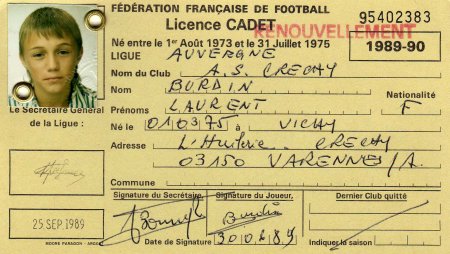 FÉDÉRATION FRANÇAISE DE FOOTBALL
Licence CADET
95402383
RENOUVELLEMENT
Né entre le 1er Août 1973 et le 31 Juillet 1975
1989-90
LIGUE AUVERGNE
Nom du Club A.S. CRECHY
Nom BURDIN
Nationalité
Prénoms LAURENT F
Le Secrétaire Général
de la Ligue :
Né le 010375 à VICHY
Adresse L'Huilerie CRECHY
03150 VARENNES/A.
Commune
Signature du Secrétaire,
Signature du Joueur,
Dernier Club quitté
25 SEP. 1989
Burdin
Date de Signature 30.0.6.89
Indiquer la saison